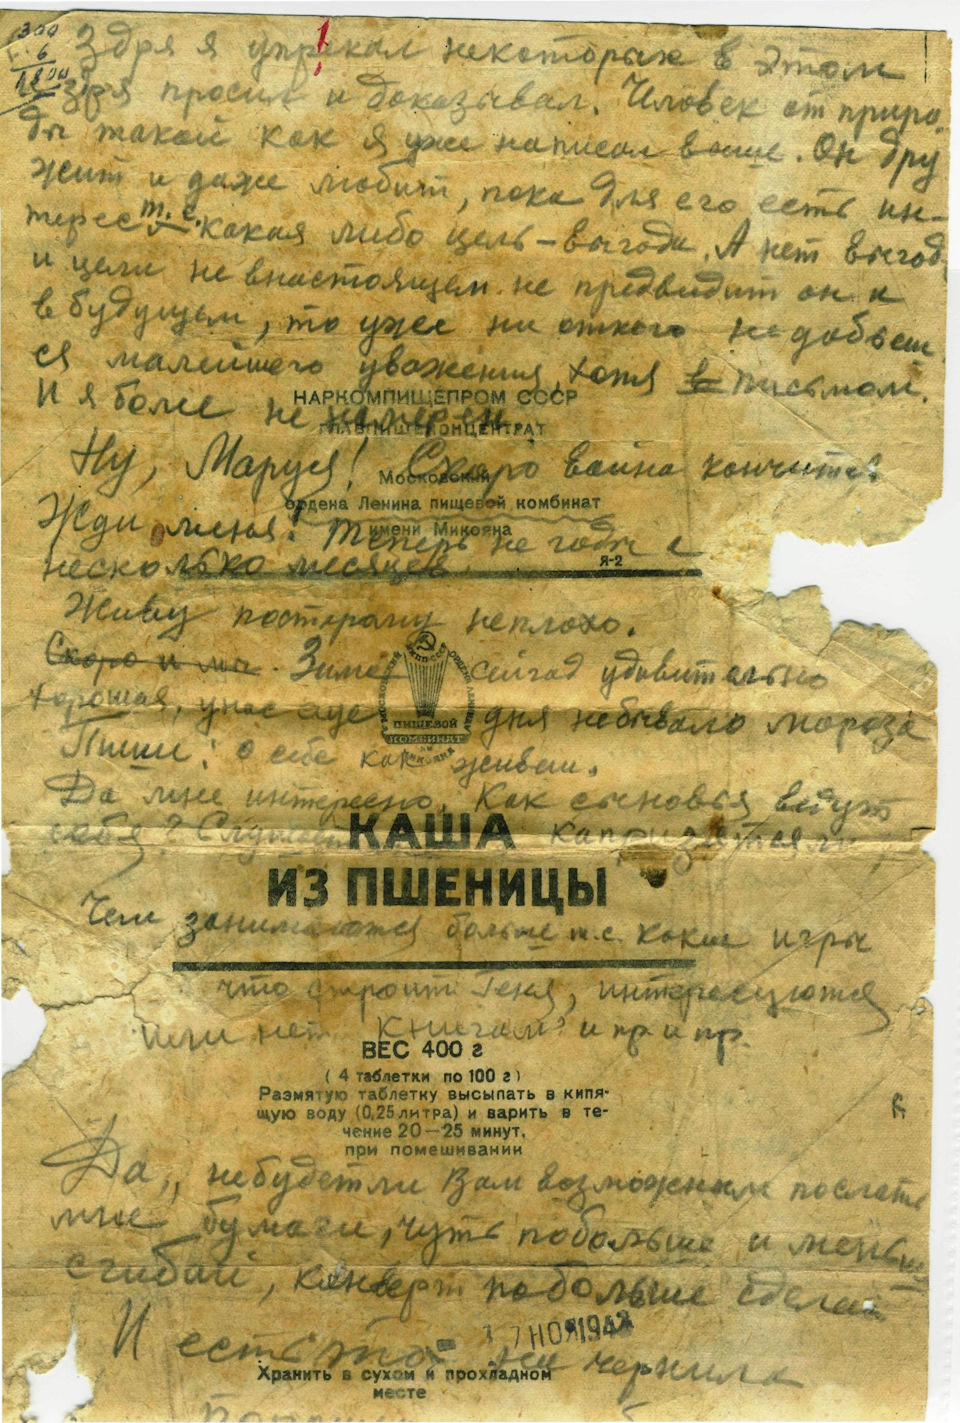 300
6
1800
Здря я упрекал некоторых в этом
и здря просил и доказывал. Человек от приро
ды такой как я уже написал выше. Он дру
жит и даже любит, пока для его есть ин-
терес т.е. какая либо цель – выгода. А нет выгод
и цели не внастоящем не предвидит он и
в будущем, то уже ни откого не добьеш
ся малейшего уважения, хотя в письмом.
И я более не намерен.
НАРКОМПИЩЕПРОМ СССР
ГЛАВПИЩЕКОНЦЕНТРАТ
Ну, Маруся! Скоро война кончится
Московский
ордена Ленина пищевой комбинат
имени Микояна
Жди меня! Теперь не годы а
несколько месяцев
Я-2
Живу постарому неплохо.
Скоро и мы Зима сейчас удивительно
хорошая, унас еще дня небывало мороза
ПИЩЕВОЙ
КОМБИНАТ
Пиши: о себе как живеш.
Да мне интересно. Как сыновья ведут
себя? капризятся ли
КАША
ИЗ ПШЕНИЦЫ
Чем занимаются больше т.е. какие игры
что строит Геня, интересуются
или нет книгами и пр и пр.
ВЕС 400 г
( 4 таблетки по 100 г )
Размятую таблетку высыпать в кипя-
щую воду (0,25 литра) и варить в те-
чение 20—25 минут,
при помешивании
Да, небудетли Вам возможным послать
мне бумаги, чуть побольше и меньше
сгибай, конверт побольше сделай
17 НОЯ 194
И есть то чернила
Хранить в сухом и прохладном
месте